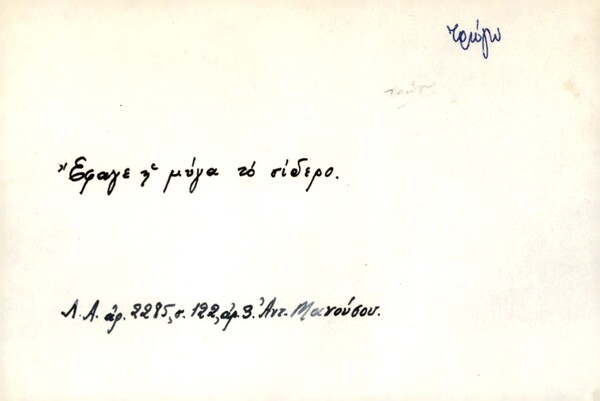 τρώγω
Ἔφαγε ἡ μύγα τό σίδερο.
Λ. Α. ἀρ. 2285, σ. 122, ἀρ. 3. Ἀντ. Μανούσου.